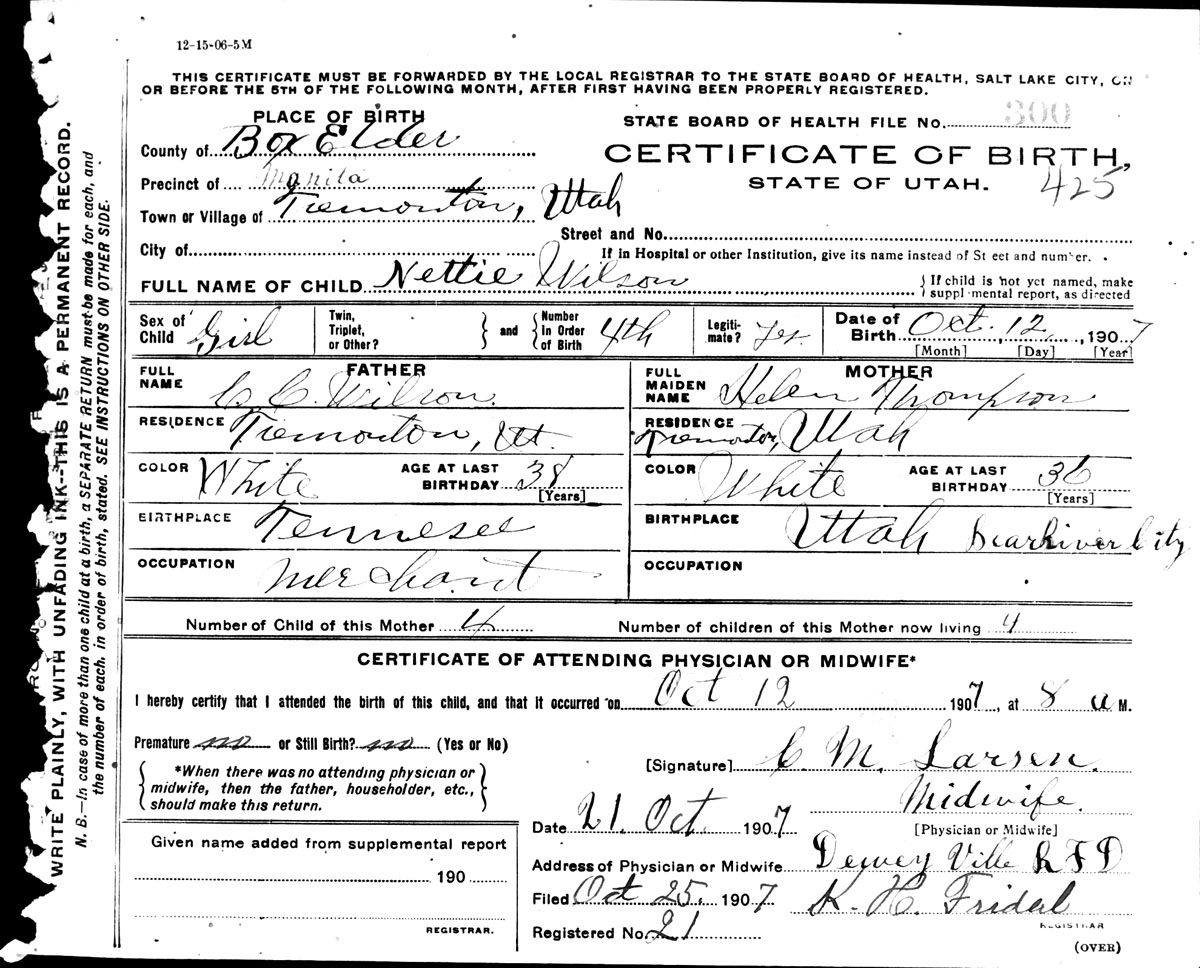 12-15-06-5M
THIS CERTIFICATE MUST BE FORWARDED BY THE LOCAL REGISTRAR TO THE STATE BOARD OF HEALTH, SALT LAKE CITY, ON
OR BEFORE THE 5TH OF THE FOLLOWING MONTH, AFTER FIRST HAVING BEEN PROPERLY REGISTERED.
PLACE OF BIRTH
STATE BOARD OF HEALTH FILE No. 300
County of Box Elder
CERTIFICATE OF BIRTH,
STATE OF UTAH.
425
Precinct of Manila
Town or Village of Tremonton, Utah
Street and No.
City of
If in Hospital or other Institution, give its name instead of St eet and number.
FULL NAME OF CHILD Nettie Wilson
{ If child is not yet named, make
suppl mental report, as directed
Sex of Child Girl
Twin, Triplet, or Other? } and { Number In Order of Birth 4th
Legiti-mate? Yes
Date of Birth Oct. 12, 1907
[Month] [Day] [Year]
FATHER
FULL NAME C. C. Wilson.
MOTHER
FULL MAIDEN NAME Helen Thompson
RESIDENCE Tremonton, Ut.
RESIDENCE Tremonton, Utah
COLOR White AGE AT LAST BIRTHDAY 38 [Years]
COLOR White AGE AT LAST BIRTHDAY 36 [Years]
BIRTHPLACE Tennesee
BIRTHPLACE Utah Bear River City
OCCUPATION Merchant
OCCUPATION
Number of Child of this Mother 4 Number of children of this Mother now living 4
CERTIFICATE OF ATTENDING PHYSICIAN OR MIDWIFE*
I hereby certify that I attended the birth of this child, and that it occurred on Oct 12 1907, at 8 a M.
Premature no or Still Birth? no (Yes or No)
{ *When there was no attending physician or
midwife, then the father, householder, etc.,
should make this return. }
[Signature] C. M. Larsen.
Midwife.
[Physician or Midwife]
Date 21. Oct. 1907
Given name added from supplemental report
190
REGISTRAR.
Address of Physician or Midwife Dewey Ville R F D
Filed Oct 25, 1907 K. H. Fridal
REGISTRAR
Registered No. 21
(OVER)
WRITE PLAINLY, WITH UNFADING INK--THIS IS A PERMANENT RECORD.
N. B.—In case of more than one child at a birth, a SEPARATE RETURN must be made for each, and
the number of each, in order of birth, stated. SEE INSTRUCTIONS ON OTHER SIDE.